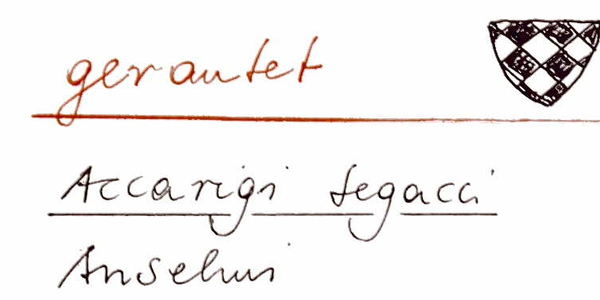 gerautet
Accarigi Segacci
Anselmi